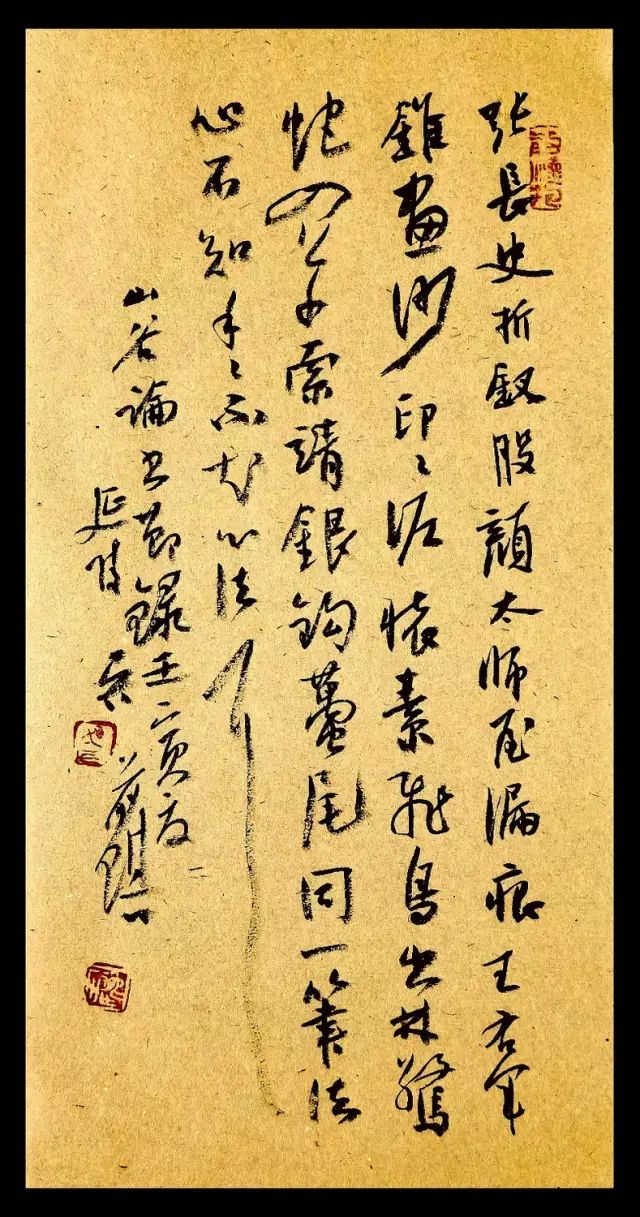 張長史折釵股顏太師屋漏痕王右軍
錐畫沙印々泥懷素飛鳥出林驚
蛇入草索靖銀鈎蠆尾同一筆法
心不知手々不知心法耳
山谷論書節錄壬寅夏
延陵